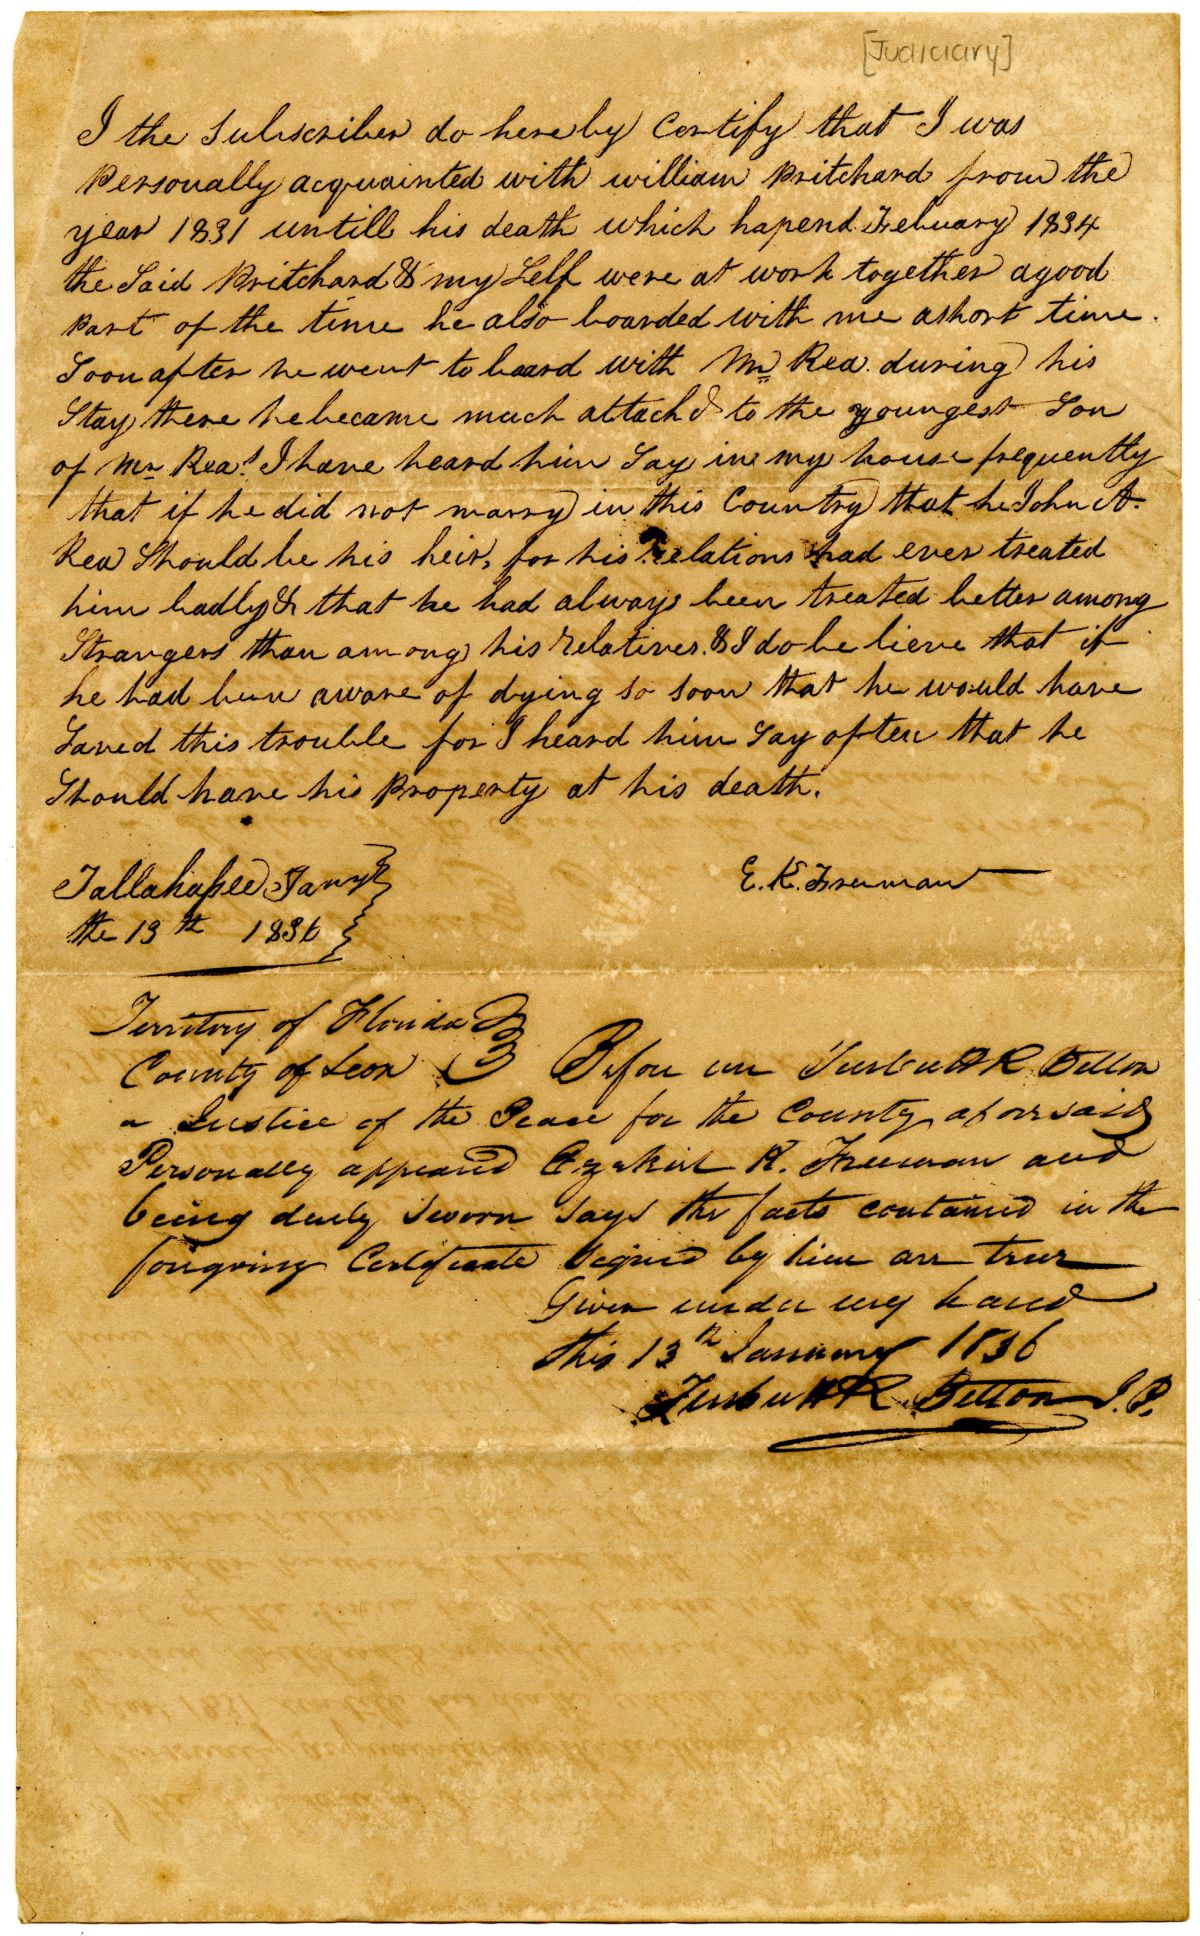 [Judiciary]
I the Subscriber do hereby Certify that I was
Personally acquainted with william Pritchard from the
year 1831 untill his death which hapend Febuary 1834
the Said Pritchard & my Self were at work together a good
Part of the time he also boarded with me a short time.
Soon after he went to board with Mr Rea. during his
Stay there he became much attachd to the youngest Son
of Mr Rea's I have heard him Say in my house frequently
that if he did not marry in this Country that he John A.
Rea Should be his heir, for his relations had ever treated
him badly & that he had always been treated better among
Strangers than among his relatives. & I do believe that if
he had been aware of dying so soon that he would have
Saved this trouble for I heard him Say often that he
Should have his Property at his death.
Tallahassee Jany
E. K. Freeman
the 13th 1836
Territory of Florida
County of Leon Before me Turbutt R Betton
a Justice of the Peace for the County aforesaid
Personally appeared Ezekiel K. Freeman and
being duly Sworn Says the facts contained in the
foregoing Certificate Signed by him are true
Given under my hand
this 13th January 1836
Turbutt R Betton J. P.